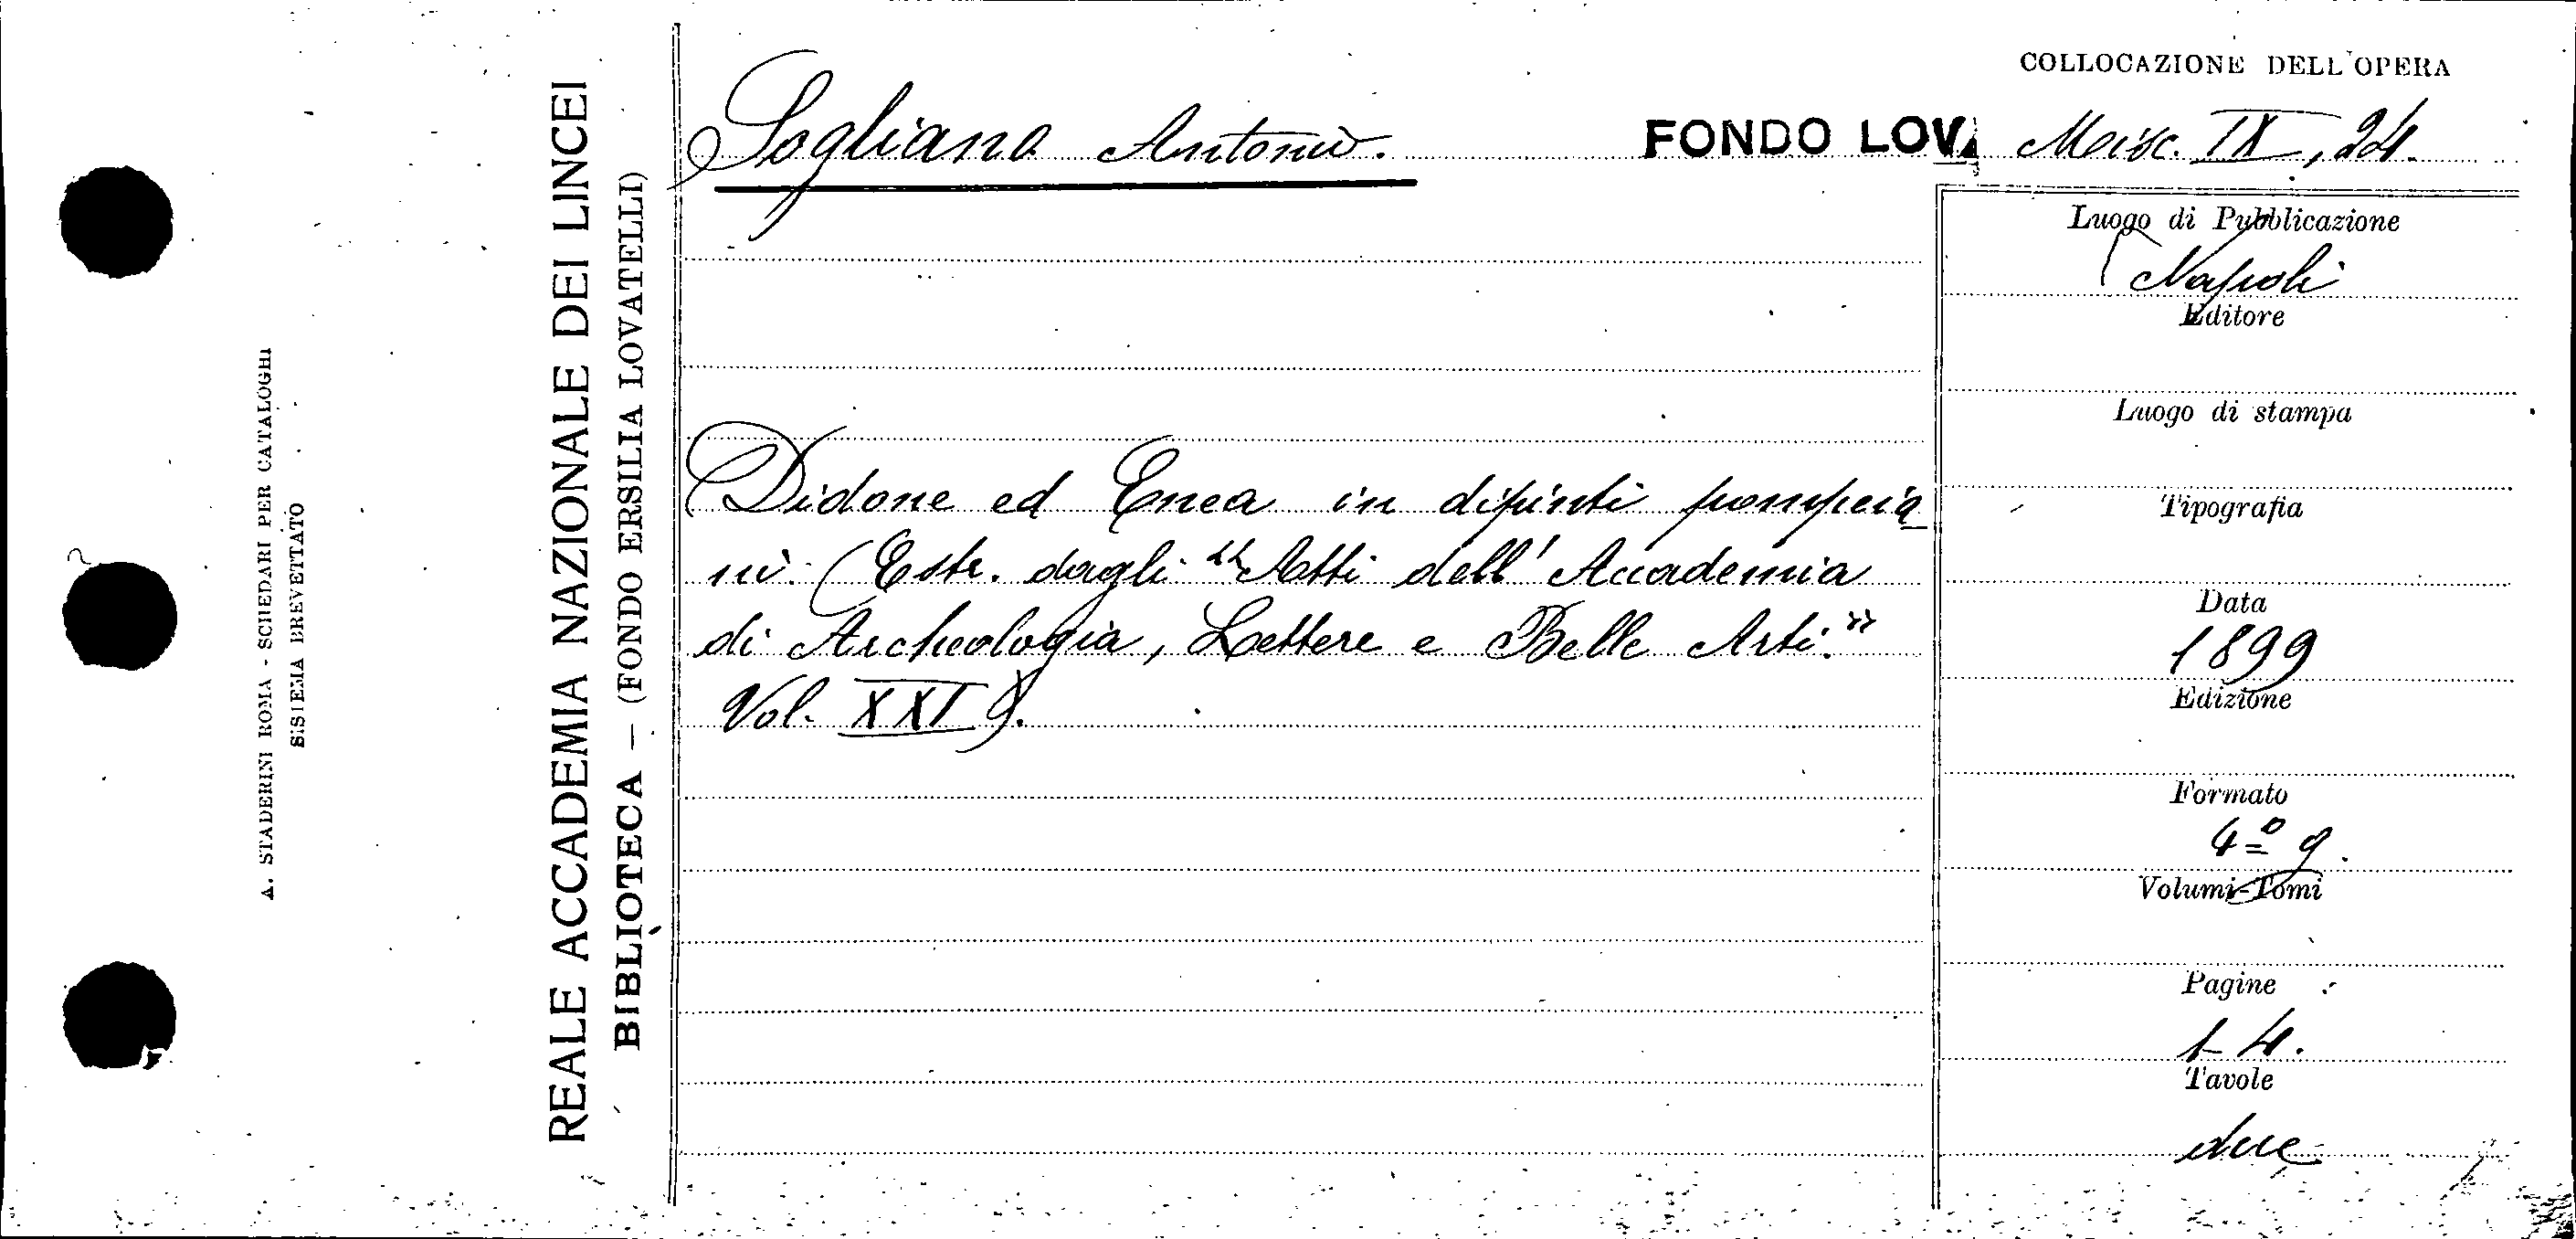 A. STADERINI ROMA - SCHEDARI PER CATALOGHI
SISTEMA BREVETTATO
REALE ACCADEMIA NAZIONALE DEI LINCEI
BIBLIOTECA — (FONDO ERSILIA LOVATELLI)
COLLOCAZIONE DELL'OPERA
Sogliano Antonio.
FONDO LOV. Misc. IX, 24.
Didone ed Enea in dipinti pompeia
ni. (Estr. dagli "Atti dell' Accademia
di Archeologia, Lettere e Belle Arti."
Vol. XXI).
Luogo di Pubblicazione
Napoli
Editore
Luogo di stampa
Tipografia
Data
1899
Edizione
Formato
4º g.
Volumi-Tomi
Pagine
1-4.
Tavole
due